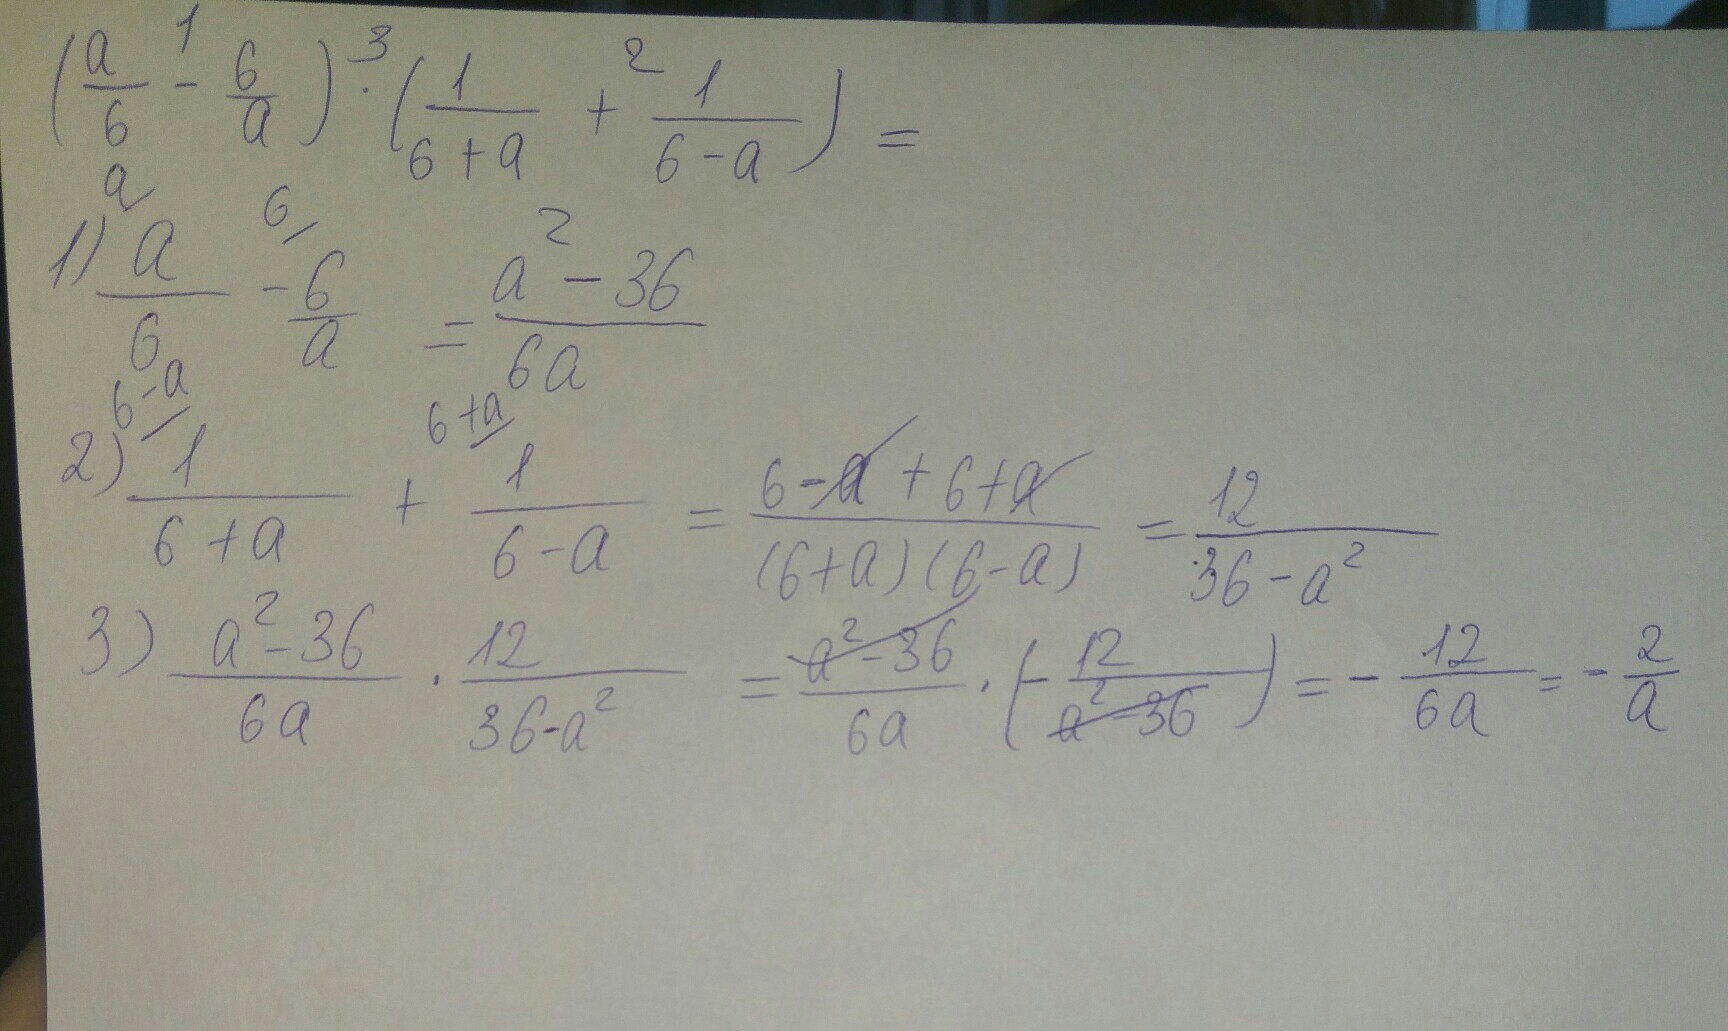 (a/6 -¹ 6/a) ·³ (1/(6+a) +² 1/(6-a)) =
1) a/6 (a/) - 6/a (6/) = (a² - 36)/(6a)
2) 1/(6+a) (6-a/) + 1/(6-a) (6+a/) = (6-a+6+a)/((6+a)(6-a)) = 12/(36-a²)
3) (a²-36)/(6a) · 12/(36-a²) = (a²-36)/(6a) · (-12/(a²-36)) = -12/(6a) = -2/a